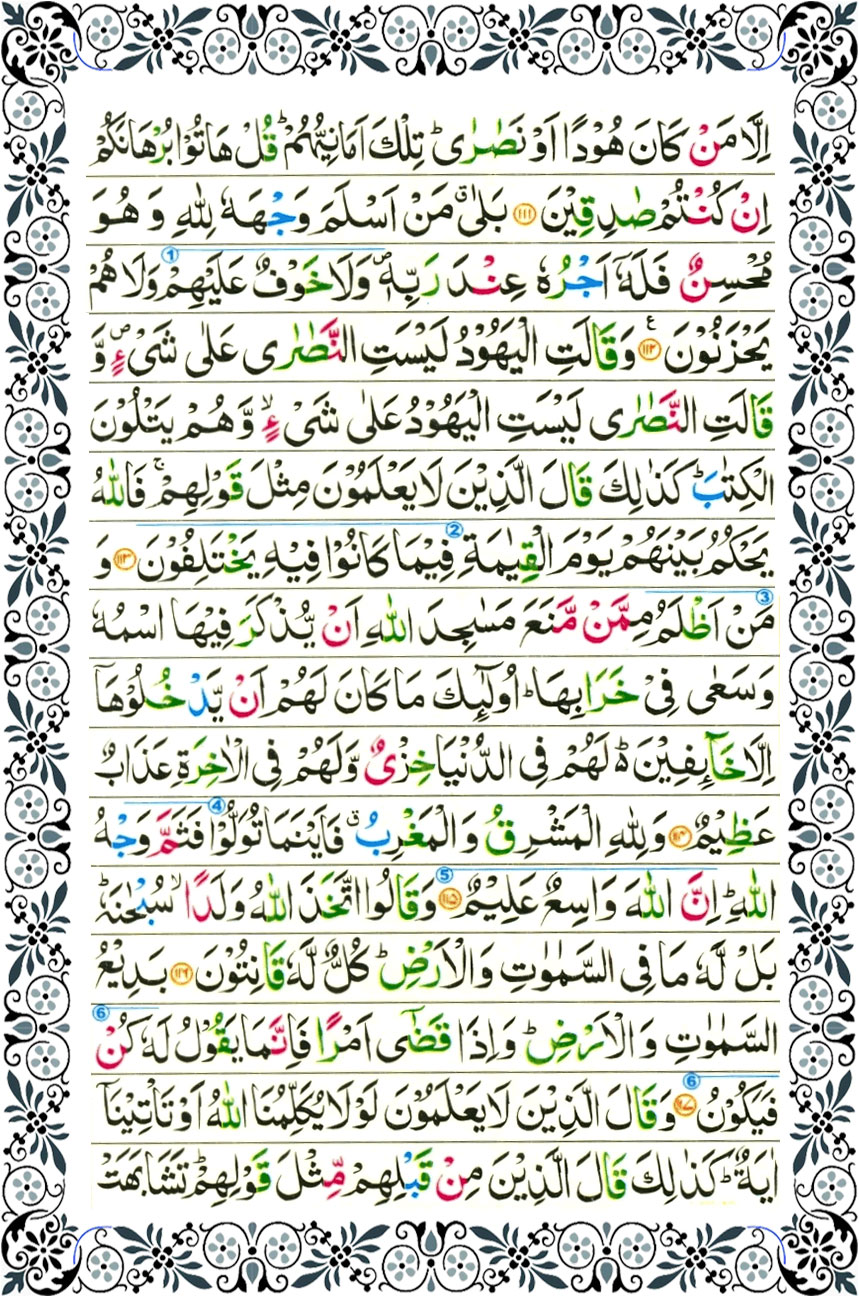 اِلَّا مَنْ كَانَ هُوْدًا اَوْ نَصٰرٰى ؕ تِلْكَ اَمَانِيُّهُمْ ؕ قُلْ هَاتُوْا بُرْهَانَكُمْ
اِنْ كُنْتُمْ صٰدِقِيْنَ ﴿۱۱۱﴾ بَلٰى ۗ مَنْ اَسْلَمَ وَجْهَهٗ لِلّٰهِ وَ هُوَ
مُحْسِنٌ فَلَهٗۤ اَجْرُهٗ عِنْدَ رَبِّهٖ ۪ وَلَا خَوْفٌ عَلَيْهِمْ وَلَا هُمْ ①
يَحْزَنُوْنَ ﴿۱۱۲﴾ ع وَقَالَتِ الْيَهُوْدُ لَيْسَتِ النَّصٰرٰى عَلٰى شَىْءٍ ۪ وَّ
قَالَتِ النَّصٰرٰى لَيْسَتِ الْيَهُوْدُ عَلٰى شَىْءٍ ۙ وَّهُمْ يَتْلُوْنَ
الْكِتٰبَ ؕ كَذٰلِكَ قَالَ الَّذِيْنَ لَا يَعْلَمُوْنَ مِثْلَ قَوْلِهِمْ ۚ فَاللّٰهُ
يَحْكُمُ بَيْنَهُمْ يَوْمَ الْقِيٰمَةِ فِيْمَا كَانُوْا فِيْهِ يَخْتَلِفُوْنَ ﴿۱۱۳﴾ وَ ②
مَنْ اَظْلَمُ مِمَّنْ مَّنَعَ مَسٰجِدَ اللّٰهِ اَنْ يُّذْكَرَ فِيْهَا اسْمُهٗ ③
وَسَعٰى فِىْ خَرَابِهَا ؕ اُولٰٓئِكَ مَا كَانَ لَهُمْ اَنْ يَّدْخُلُوْهَاۤ
اِلَّا خَآئِفِيْنَ ۬ؕ لَهُمْ فِى الدُّنْيَا خِزْىٌ وَّلَهُمْ فِى الْاٰخِرَةِ عَذَابٌ
عَظِيْمٌ ﴿۱۱۴﴾ وَلِلّٰهِ الْمَشْرِقُ وَالْمَغْرِبُ ۗ فَاَيْنَمَا تُوَلُّوْا فَثَمَّ وَجْهُ ④
اللّٰهِ ؕ اِنَّ اللّٰهَ وَاسِعٌ عَلِيْمٌ ﴿۱۱۵﴾ ⑤ وَقَالُوا اتَّخَذَ اللّٰهُ وَلَدًا ۙ سُبْحٰنَهٗ ؕ
بَلْ لَّهٗ مَا فِى السَّمٰوٰتِ وَالْاَرْضِ ؕ كُلٌّ لَّهٗ قَانِتُوْنَ ﴿۱۱۶﴾ بَدِيْعُ
السَّمٰوٰتِ وَالْاَرْضِ ؕ وَاِذَا قَضٰٓى اَمْرًا فَاِنَّمَا يَقُوْلُ لَهٗ كُنْ ⑥
فَيَكُوْنُ ﴿۱۱۷﴾ ⑥ وَقَالَ الَّذِيْنَ لَا يَعْلَمُوْنَ لَوْلَا يُكَلِّمُنَا اللّٰهُ اَوْ تَاْتِيْنَاۤ
اٰيَةٌ ؕ كَذٰلِكَ قَالَ الَّذِيْنَ مِنْ قَبْلِهِمْ مِّثْلَ قَوْلِهِمْ ؕ تَشَابَهَتْ